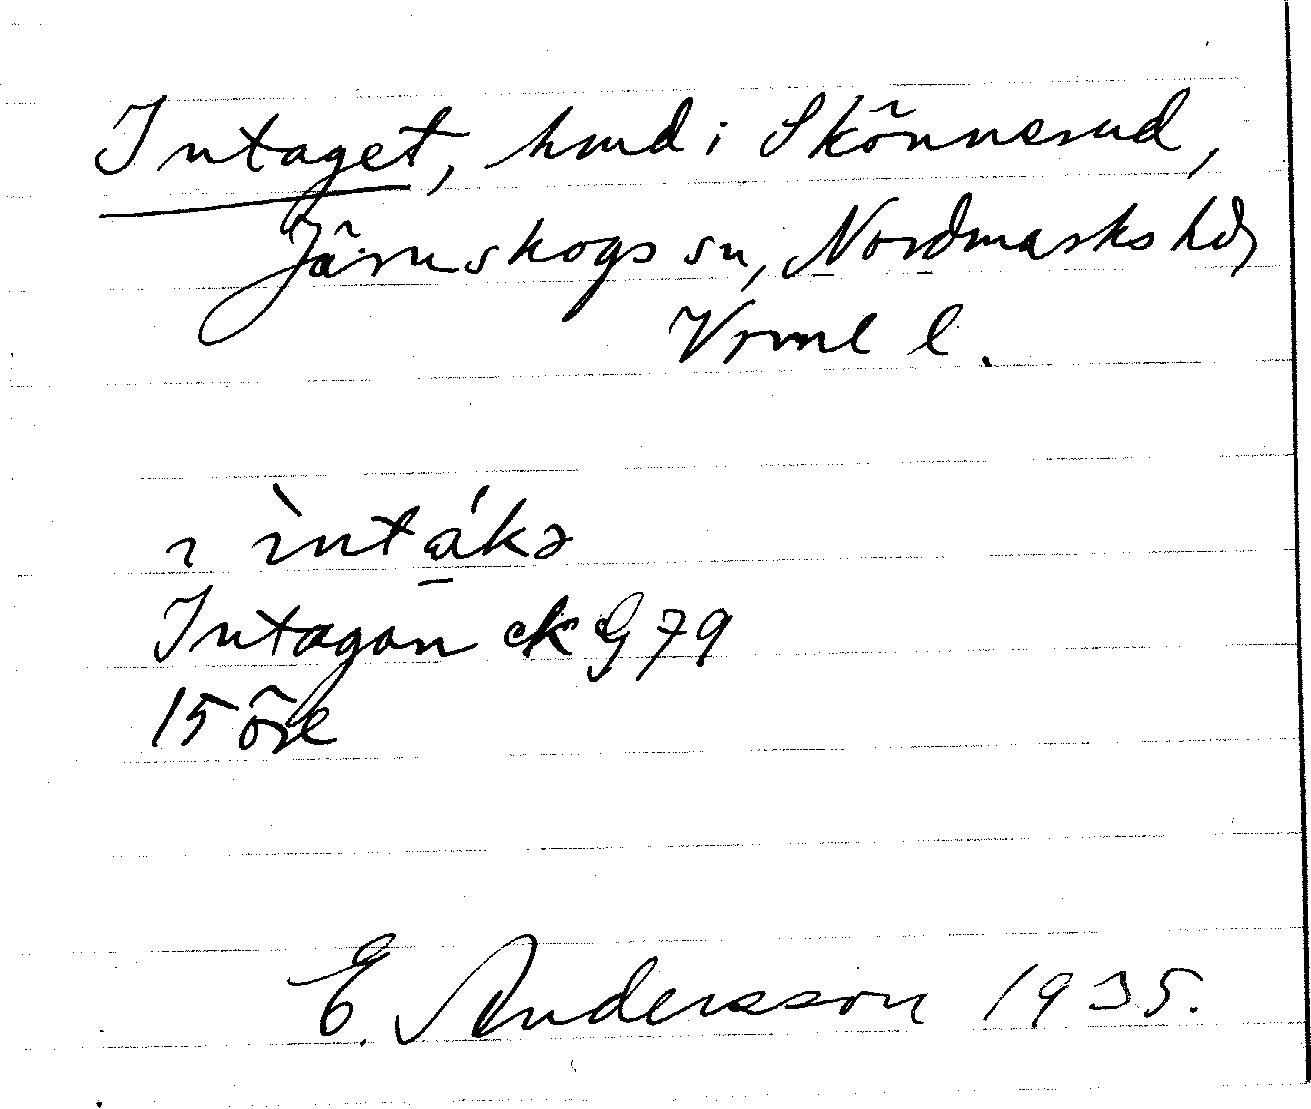 Intaget, hmd i Skönnerud,
Järnskogs sn, Nordmarks hd,
Vrml l.
ı ìntákə
Intagan ek G 79
15 öre
E. Andersson 1935.